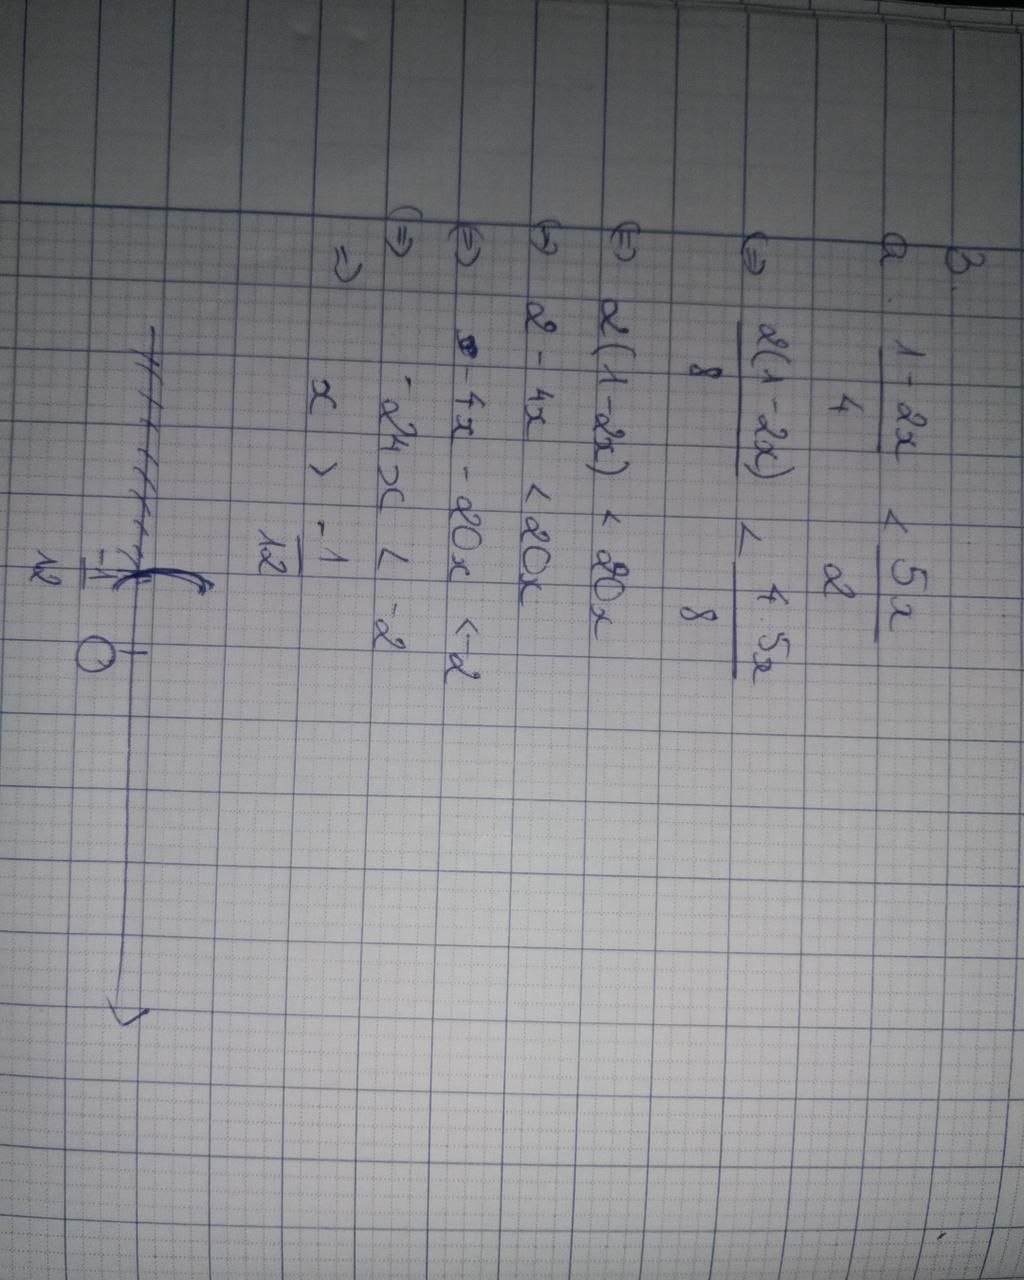 B.
a. 1-2x/4 < 5x/2
⇔ 2(1-2x)/8 < 4.5x/8
⇔ 2(1-2x) < 20x
⇔ 2-4x < 20x
⇔ -4x-20x < -2
⇔ -24x < -2
⇒ x > -1/12
-1/12 0